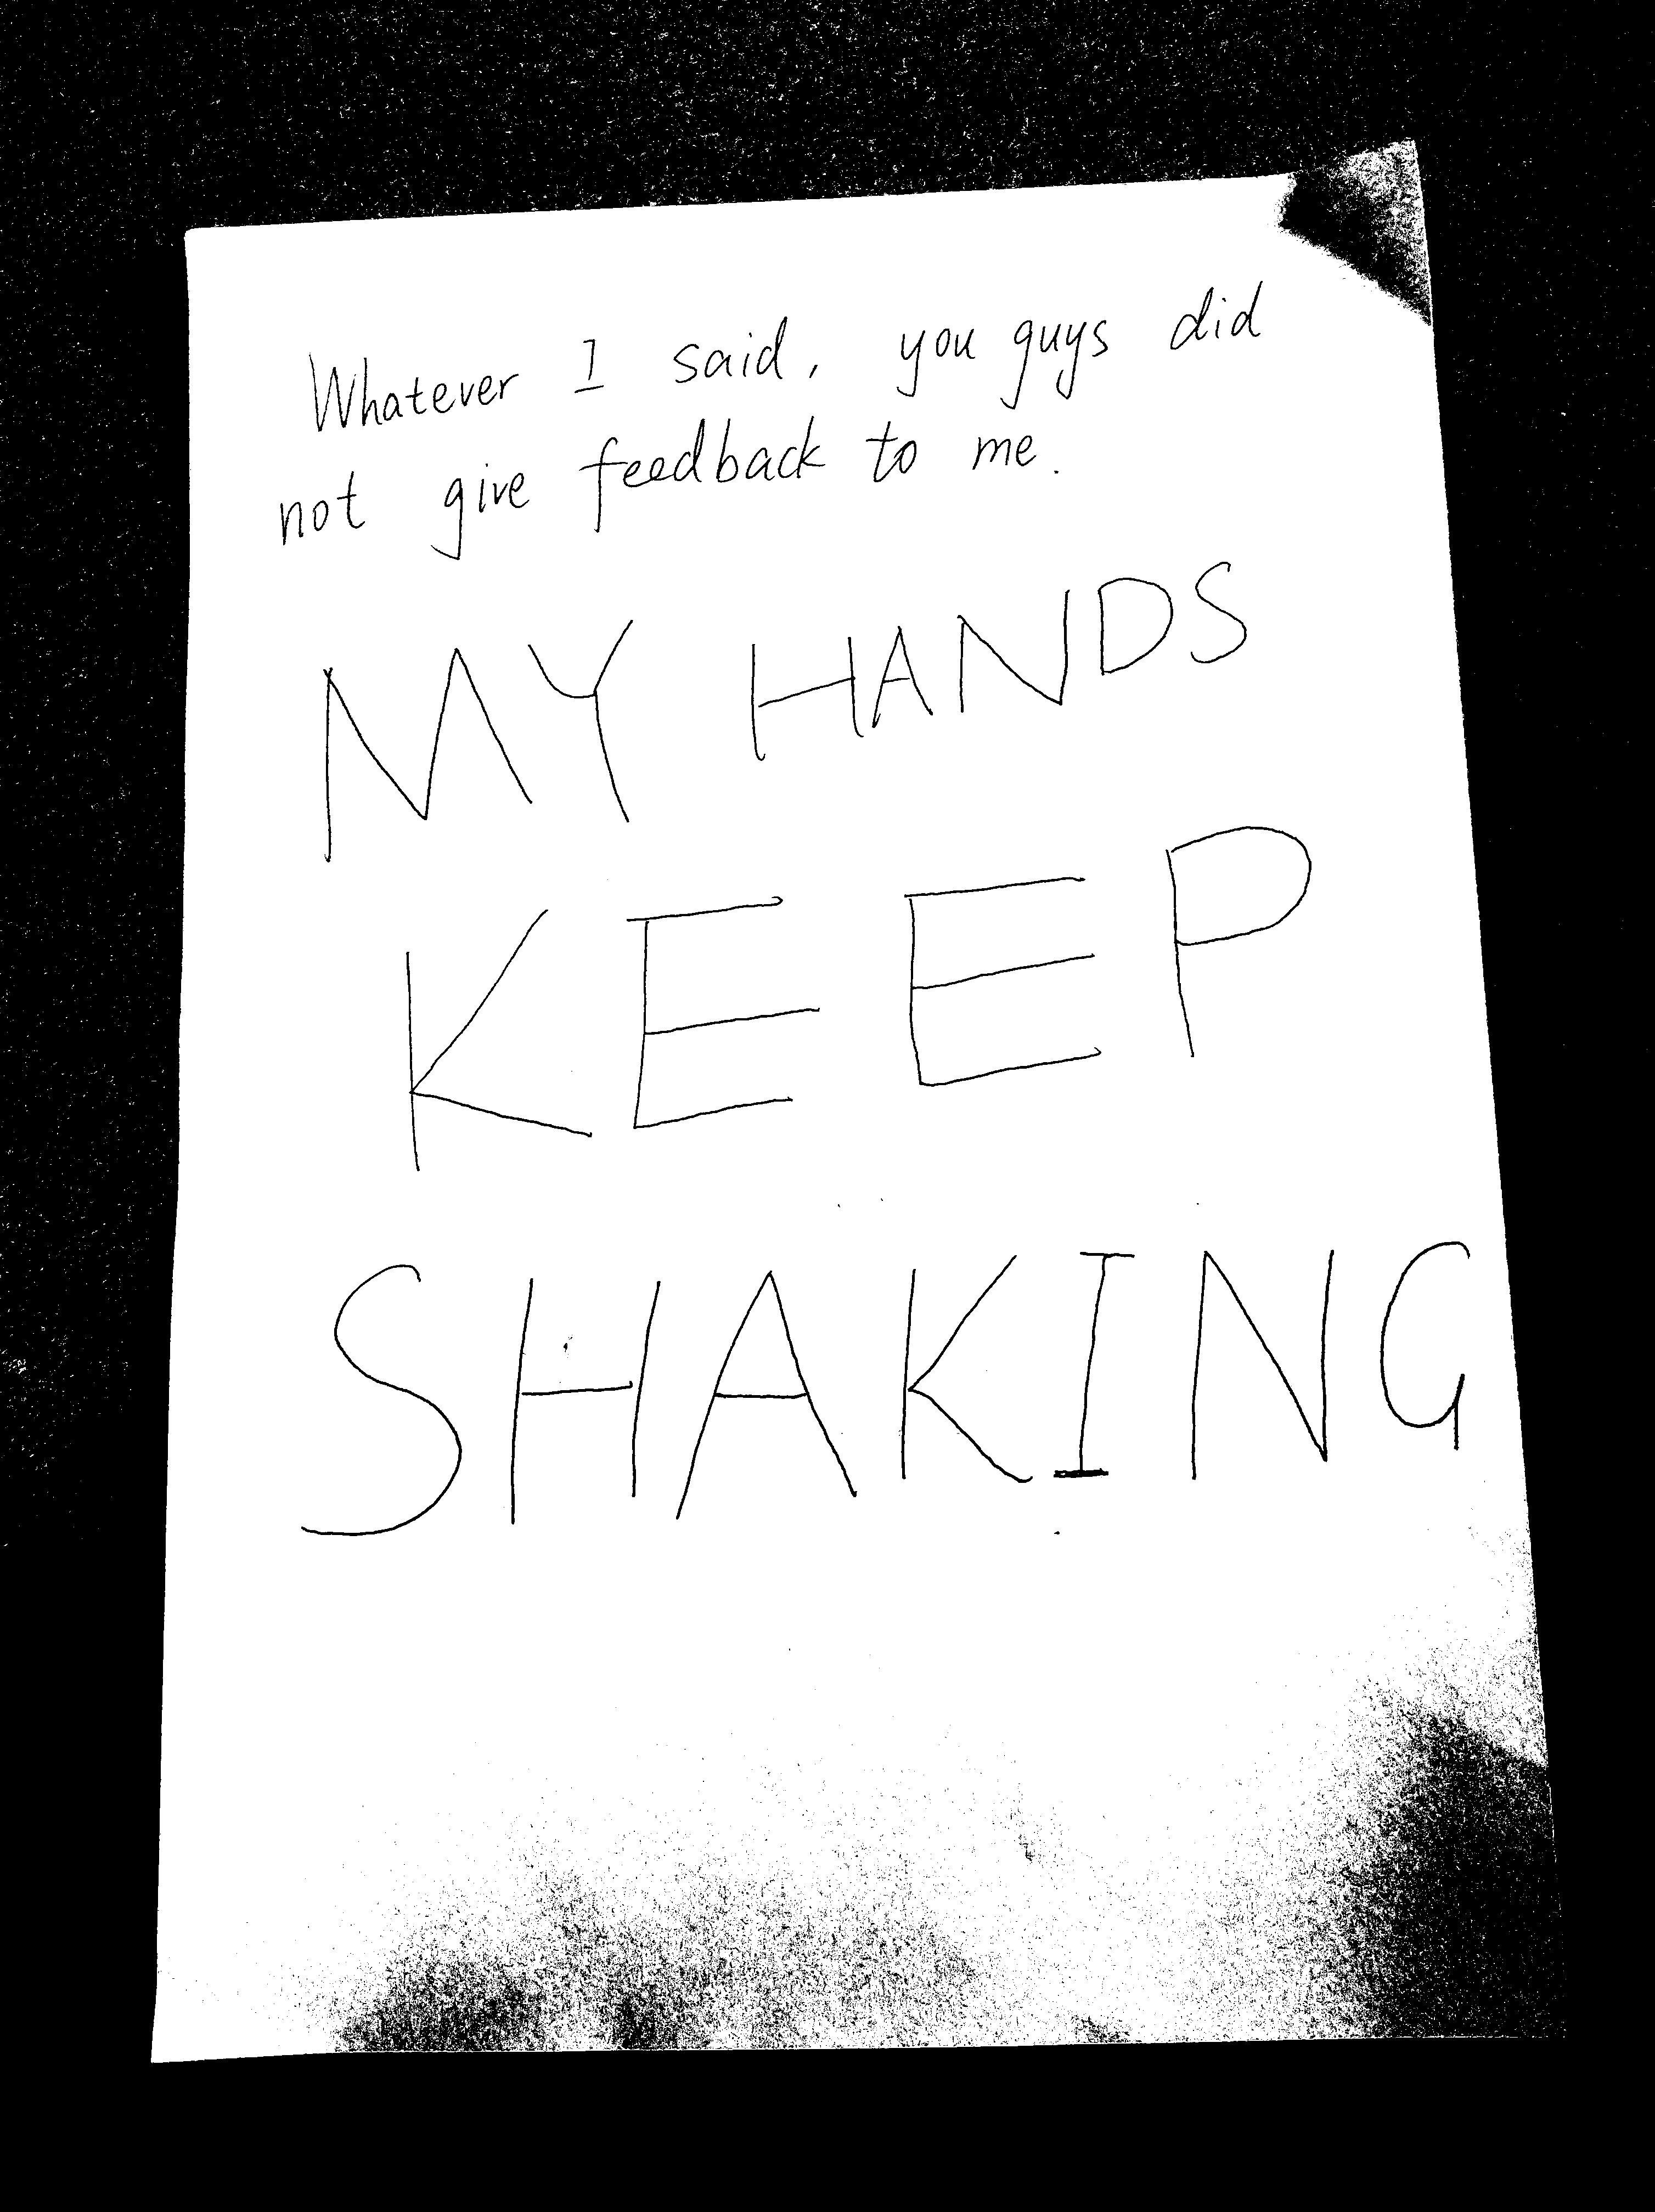 Whatever I said, you guys did
not give feedback to me.
MY HANDS
KEEP
SHAKING